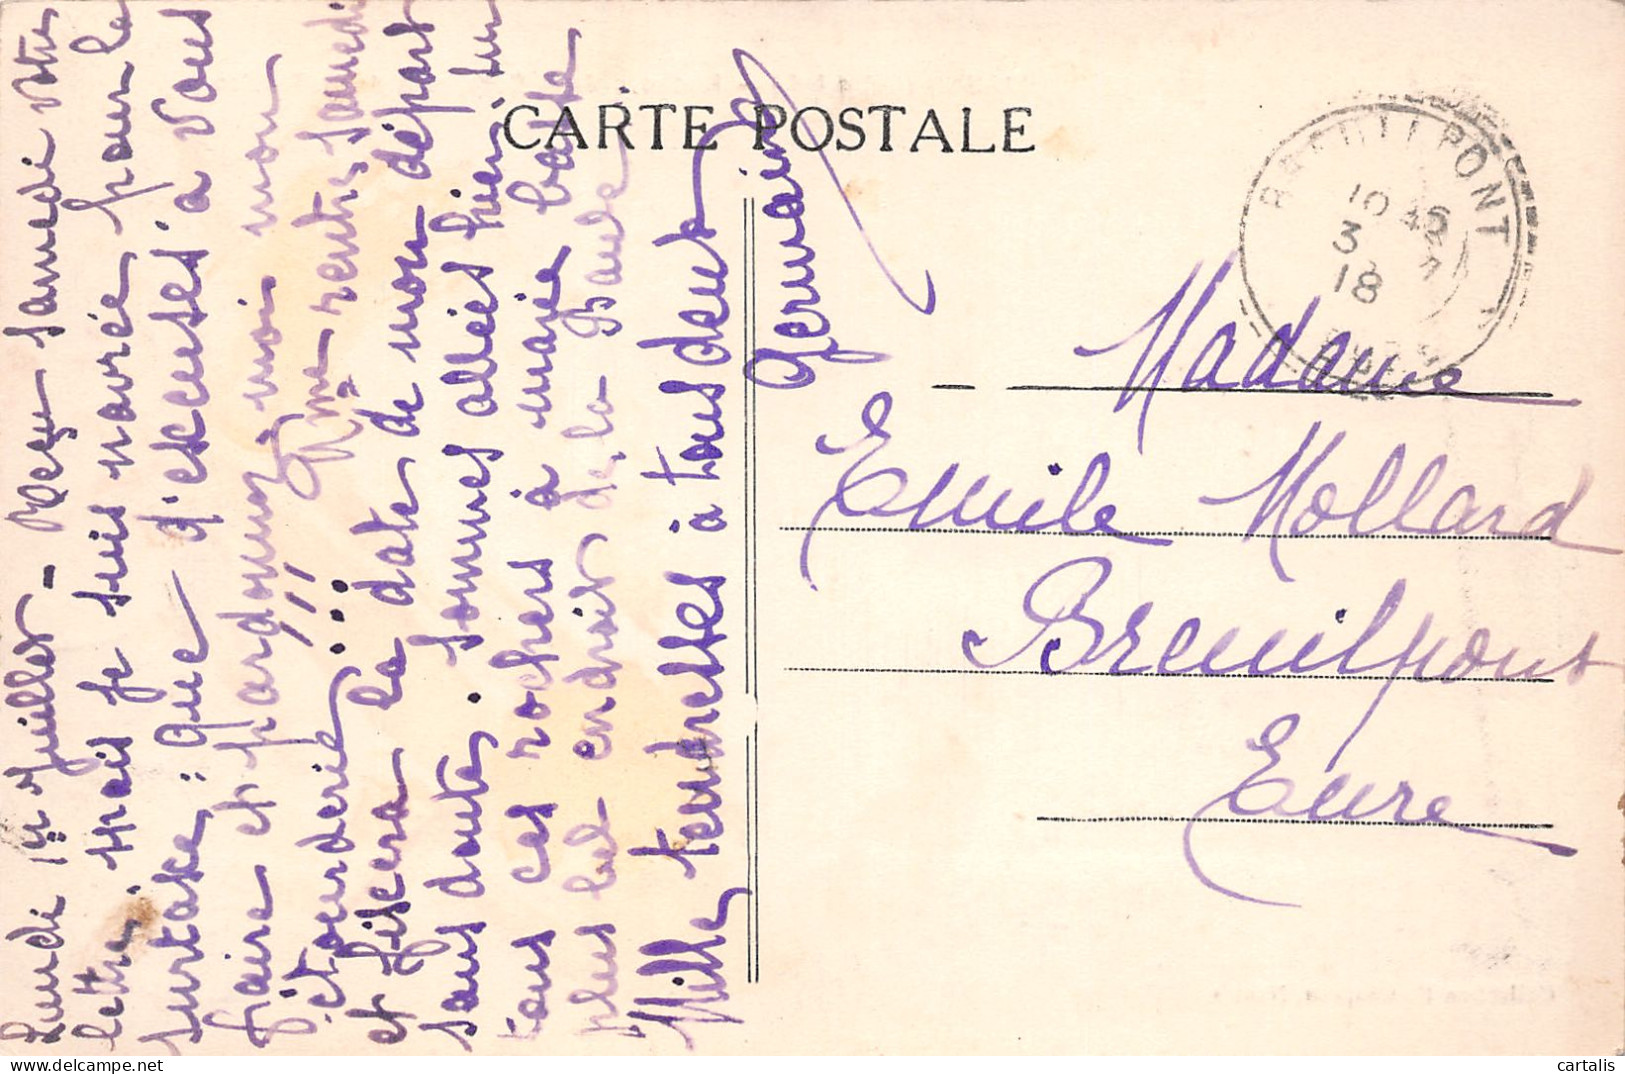 Lundi 1er Juillet - Reçu samedi votre
lettre. mais je suis navrée pour la
surtaxe; que d'excuses à vous
faire et pardonnez moi mon
étourderie!!! Mme rentre samedi
et fixera la date de mon départ
sans doute. Sommes allées hier sur
tous ces rochers à marée basse
plus bel endroit de la Baule
Mille tendresses à tous deux
Germaine
CARTE POSTALE
BREUILPONT
10
3 7
18
EURE
Madame
Emile Mollard
Breuilpont
Eure
cartalis